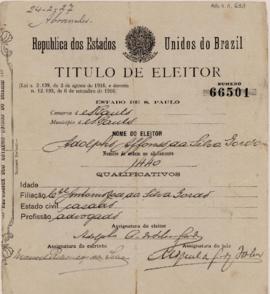 24-2-27
Republica dos Estados Unidos do Brazil
TITULO DE ELEITOR
(Lei n. 3.139, de 2 de agosto de 1916, e decreto
n. 12.193, de 6 de setembro de 1916)
NUMERO
66501
ESTADO DE S. PAULO
Comarca de S. Paulo
Municipio de S. Paulo
NOME DO ELEITOR
Adolpho Affonso da Silva Gordo
Numero de ordem no alistamento
1440
QUALIFICATIVOS
Idade
Filiação Antonio da Silva Gordo
Estado civil casado
Profissão advogado
Assignatura do eleitor
Assignatura do escrivão
Assignatura do juiz